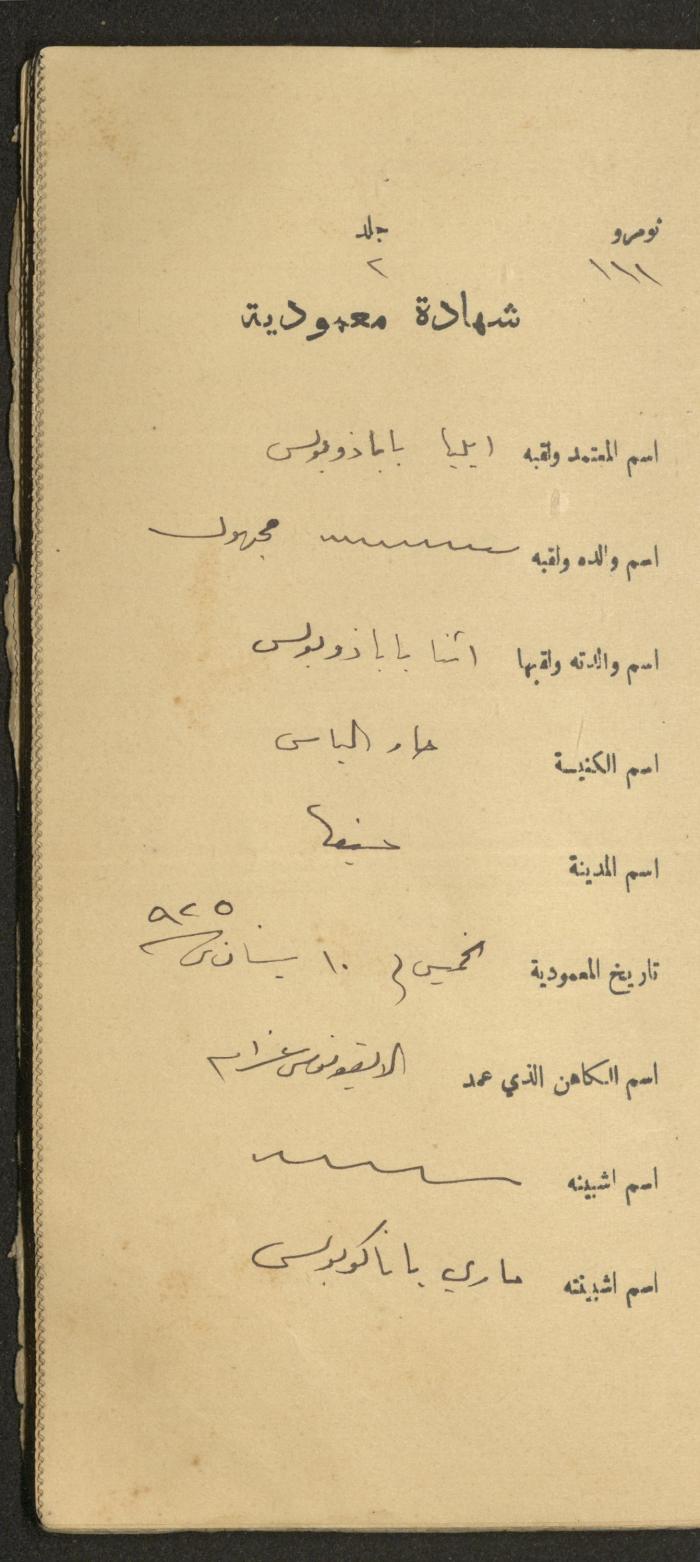 نومرو جلد
١١١ ٢
شهادة معمودية
اسم المعتمد ولقبه ايليا باباذوبولس
اسم والده ولقبه مجهول
اسم والدته ولقبها اثنا باباذوبولس
اسم الكنيسة مار الياس
اسم المدينة حيفا
٩٢٥
تاريخ المعمودية الخميس في ١٠ نيسان
اسم الكاهن الذي عمد الايقونوس
اسم اشبينه
اسم اشبينته ماري باناكوبولس